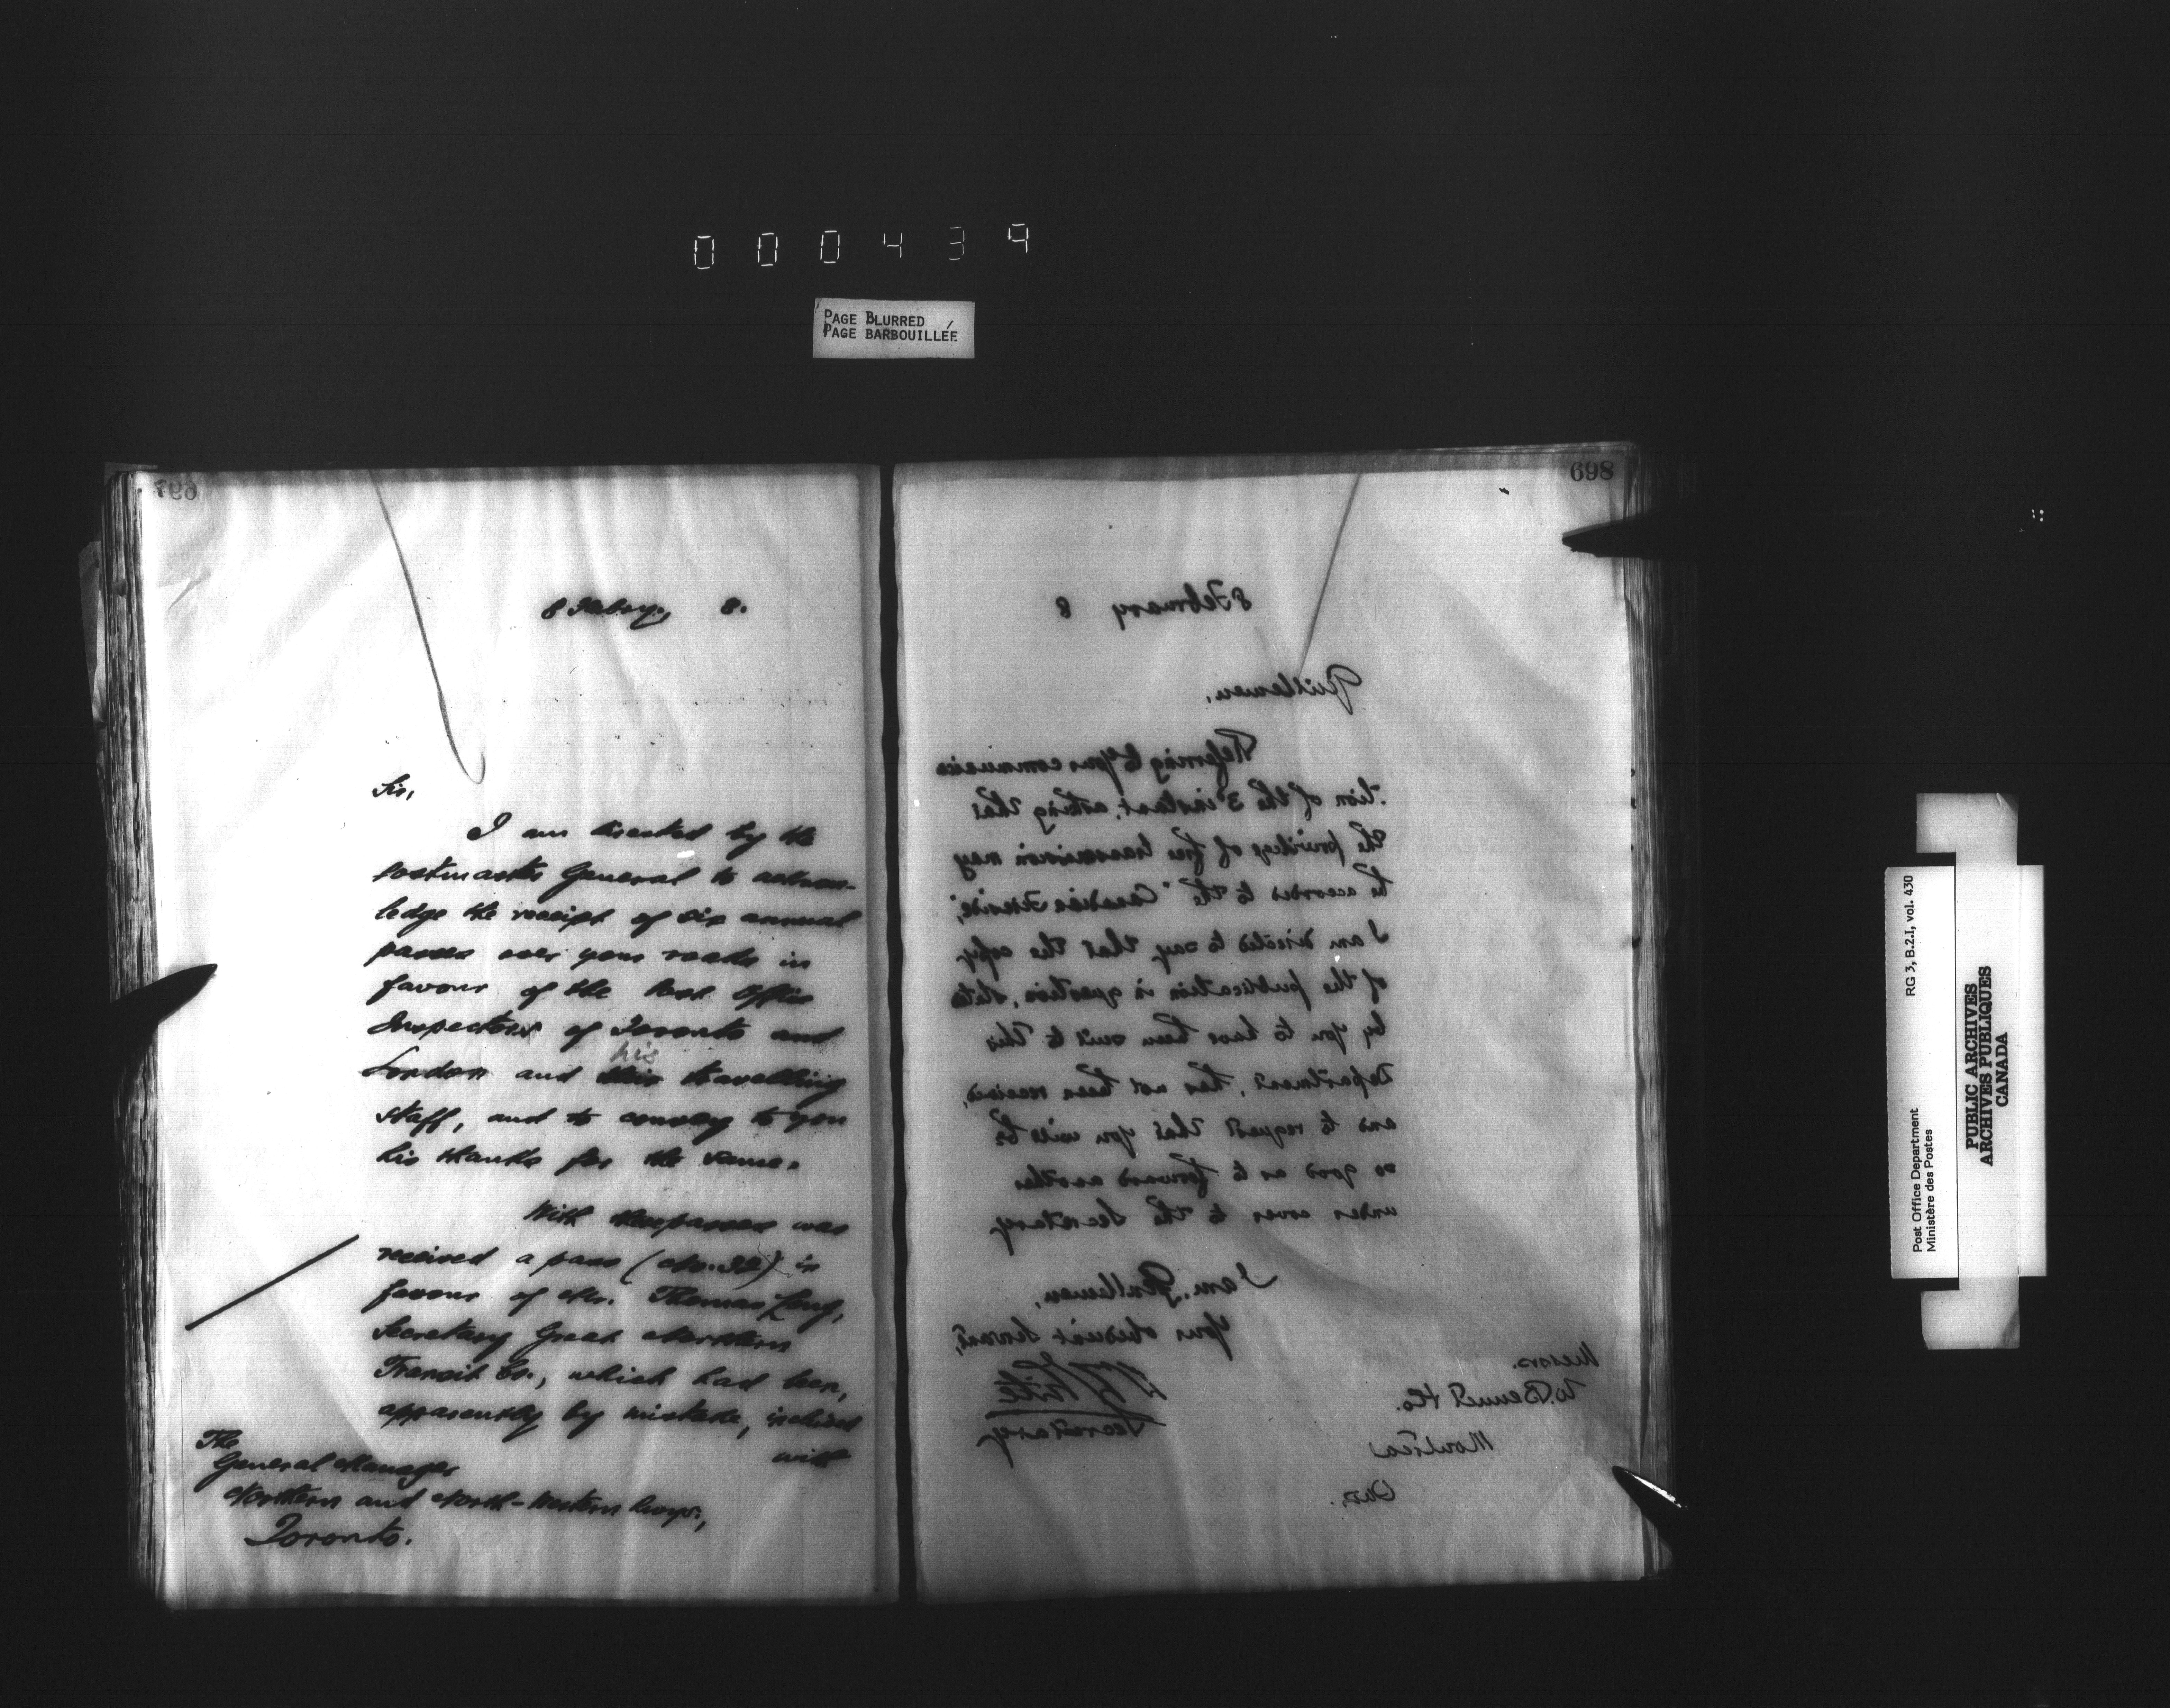 000439
PAGE BLURRED
PAGE BARBOUILLÉE
697
8 Febry, 8.
Sir,
I am directed by the
Postmaster General to acknow-
ledge the receipt of six annual
passes over your roads in
favour of the Post Office
Inspectors of Toronto and
his
London and their travelling
staff, and to convey to you
his thanks for the same.
With these passes was
received a pass (No. 32) in
favour of Mr. Thomas Long,
Secretary Great Northern
Transit Co., which had been,
apparently by mistake, inclosed
with
The
General Manager
Northern and North-Western Rwys.,
Toronto.
698
8 February 8
Gentlemen,
Referring to your communica
-tion of the 3 instant, asking that
the privilege of free transmission may
be accorded to the "Canadian
I am directed to say that the copy
of the publication in question, stated
by you to have been sent to this
Department, has not been received,
and to request that you will be
so good as to forward another
under cover to the Secretary
I am, Gentlemen,
Your obedient Servant,
White
Secretary
Messrs.
W. Bennet & Co.
Montreal
Que.
Post Office Department
Ministère des Postes
RG 3, B.2.I, vol. 430
PUBLIC ARCHIVES
ARCHIVES PUBLIQUES
CANADA